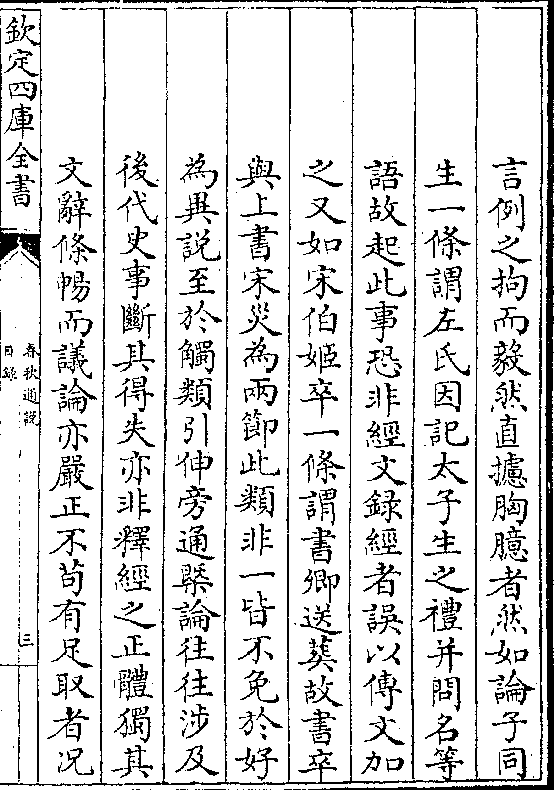 言例之拘而毅然直攄胸臆者然如論子同
生一條謂左氏因記太子生之禮并問名等
語故起此事恐非經文録經者誤以傳文加
之又如宋伯姬卒一條謂書卿送葬故書卒
與上書宋災為兩節此類非一皆不免於好
為異説至於觸類引伸旁通槩論往往涉及
後代史事斷其得失亦非釋經之正體獨其
文辭條暢而議論亦嚴正不苟有足取者况
欽定四庫全書
春秋通説
目録
三